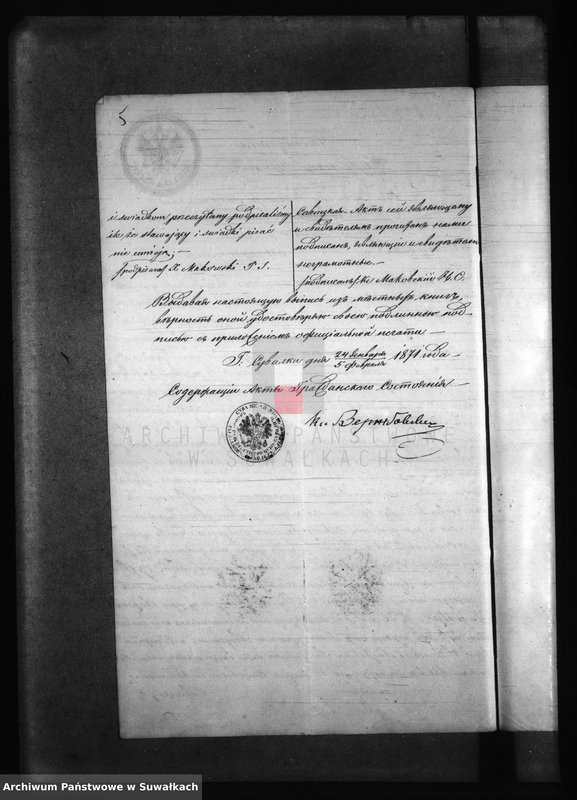 5
i świadkom przeczytany podpisaliśmy
ile że stawający i świadki pisać
nie umieją;
podpisano/ X. Makowski P. S.
Савицкая. Актъ сей объявляющему
и свидѣтелямъ прочитанъ нами
подписанъ, объявляющій и свидѣтели
неграмотны.
/подписалъ/ Кс. Маковскій
Выдавая настоящую выпись изъ мѣстныхъ книгъ,
вѣрность оной удостовѣряю своею подлинною под-
писью съ приложеніемъ официальной печати
Г. Сувалки дня 24 Января / 5 Февраля 1871 года
Содержащій Акты Гражданскаго Состоянія
Кс.
ARCHIWUM PAŃSTWOWE
W SUWAŁKACH
Archiwum Państwowe w Suwałkach